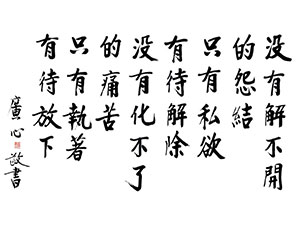 没有解不開
的怨結
只有私欲
有待解除
没有化不了
的痛苦
只有執著
有待放下
寬心敬書